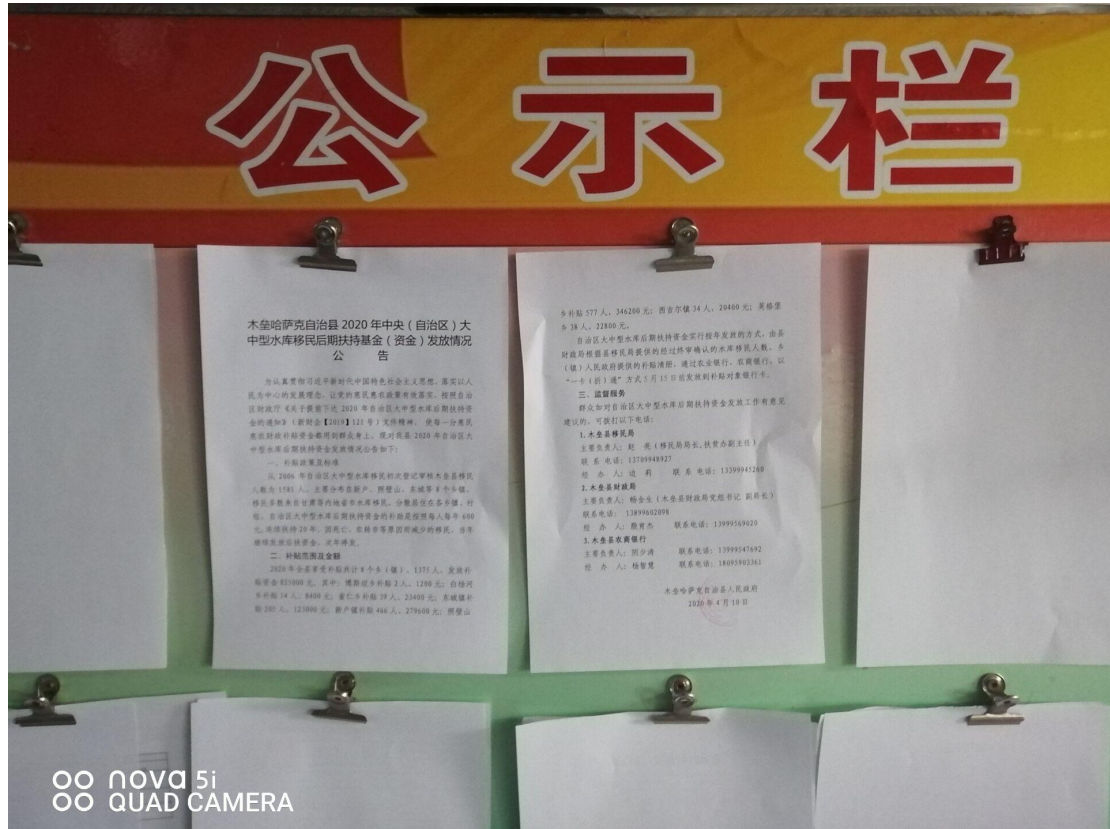 公示栏
木垒哈萨克自治县2020年中央（自治区）大
中型水库移民后期扶持基金（资金）发放情况
公 告
为认真贯彻习近平新时代中国特色社会主义思想，落实以人
民为中心的发展理念，让党的惠民惠农政策有效落实，按照自治
区财政厅《关于提前下达2020年自治区大中型水库后期扶持资
金的通知》（新财企【2019】121号）文件精神，使每一分惠民
惠农财政补贴资金都用到群众身上，现对我县2020年自治区大
中型水库后期扶持资金发放情况公告如下：
一、补贴政策及标准
从2006年自治区大中型水库移民初次登记审核木垒县移民
人数为1581人，主要分布在新户、照壁山、东城等8个乡镇，
移民多数来自甘肃等内地省市水库移民，分散居住在各乡镇、村
组。自治区大中型水库后期扶持资金的补助是按照每人每年600
元，连续扶持20年，因死亡、农转非等原因而减少的移民，当年
继续发放后扶资金，次年停发。
二、补贴范围及金额
2020年全县享受补贴共计8个乡（镇），1375人，发放补
贴资金825000元，其中：博斯坦乡补贴2人，1200元；白杨河
乡补贴14人，8400元；雀仁乡补贴39人，23400元；东城镇补
贴205人，123000元；新户镇补贴466人，279600元；照壁山
乡补贴577人，346200元；西吉尔镇34人，20400元；英格堡
乡38人，22800元。
自治区大中型水库后期扶持资金实行按年发放的方式，由县
财政局根据县移民局提供的经过终审确认的水库移民人数、乡
（镇）人民政府提供的补贴清册，通过农业银行、农商银行，以
“一卡（折）通”方式5月15日前发放到补贴对象银行卡。
三、监督服务
群众如对自治区大中型水库后期扶持资金发放工作有意见
建议的，可拨打以下电话：
1.木垒县移民局
主要负责人：赵 亮（移民局局长，扶贫办副主任）
联 系 电话：13709948927
经 办 人：边 莉 联 系 电话：13399945260
2.木垒县财政局
主要负责人：杨金生（木垒县财政局党组书记 副局长）
联系电话：13899602098
经 办 人：殷育杰 联系电话：13999569020
3.木垒县农商银行
主要负责人：闫少涛 联系电话：13999547692
经 办 人：杨智慧 联系电话：18095903361
木垒哈萨克自治县人民政府
2020年4月10日
nova 5i
QUAD CAMERA